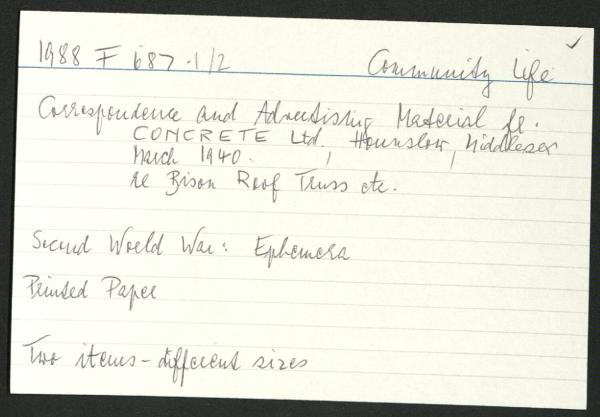 1988 F 687 .1/2 Community Life
Correspondence and Advertising Material fr.
CONCRETE Ltd., Hounslow, Middlesex
March 1940.
re Bison Roof Truss etc.
Second World War: Ephemera
Printed Paper
Two items - different sizes